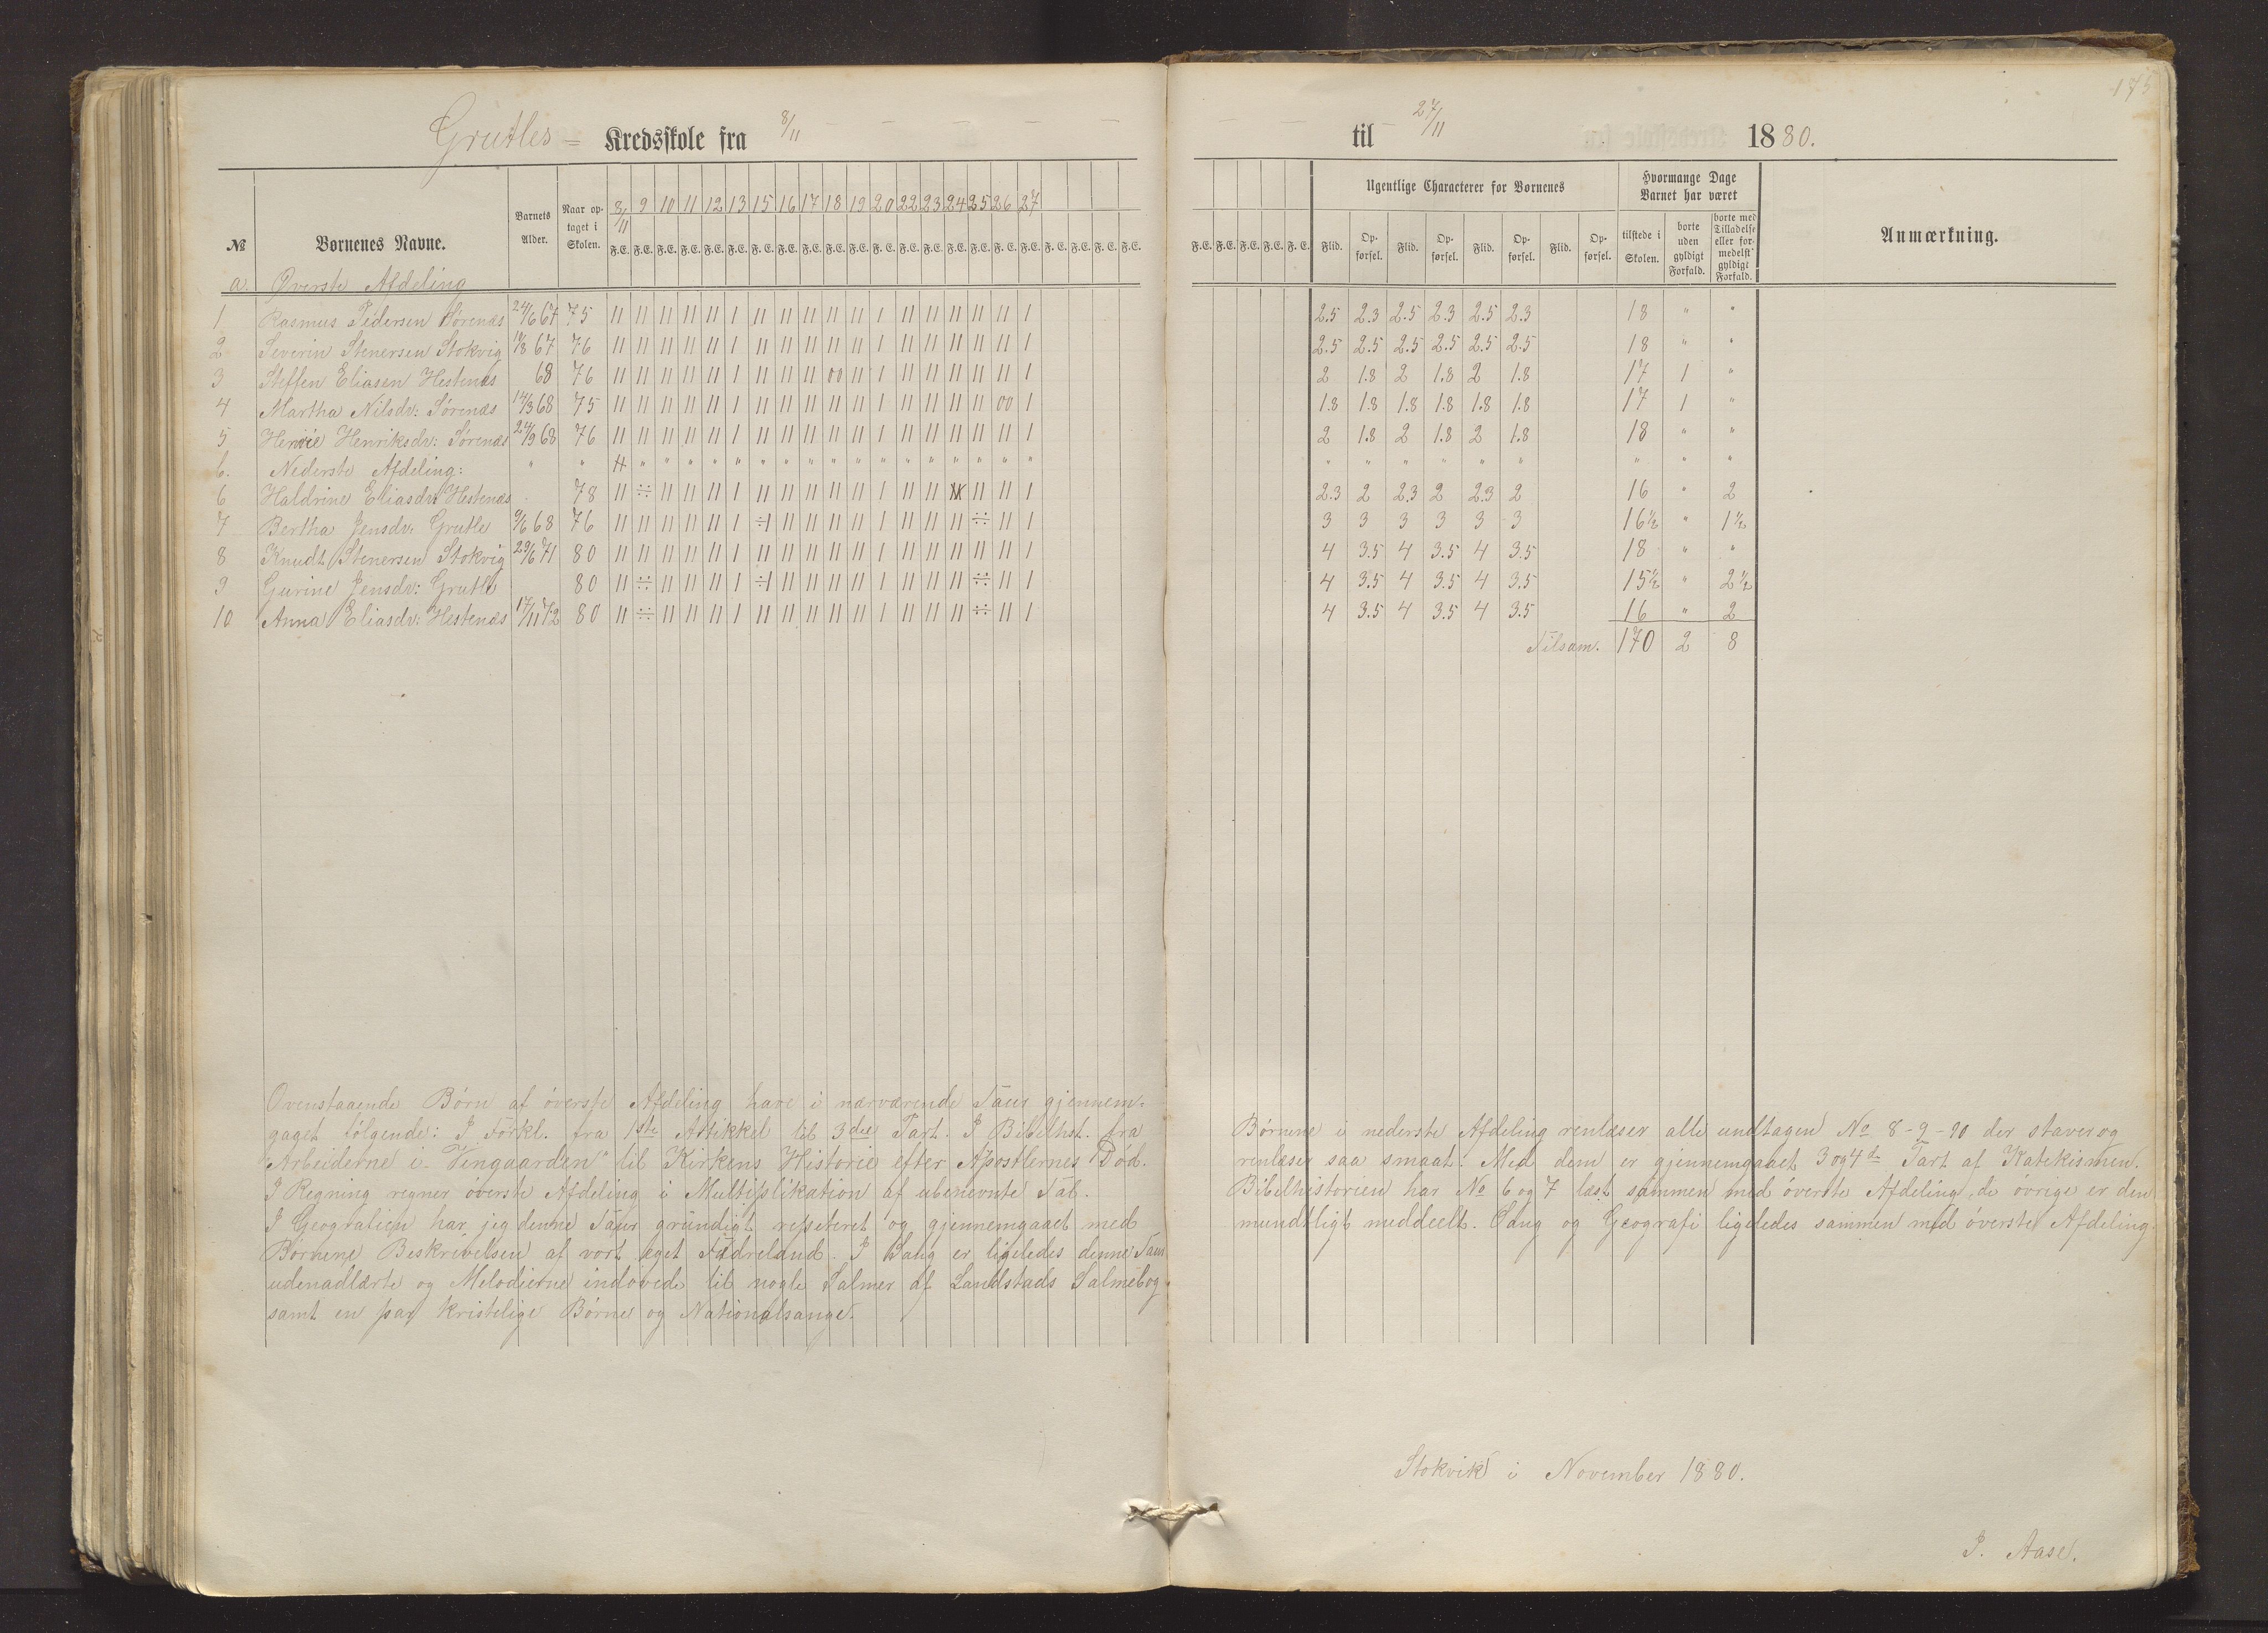 175
Grutles = Kredsskole fra 8/11 til 27/11 1880.
№ Børnenes Navne. Barnets Alder. Naar optaget i Skolen. 8/11 9 10 11 12 13 15 16 17 18 19 20 22 23 24 25 26 27 Ugentlige Characterer for Børnenes Hvormange Dage Barnet har været Anmærkning.
F.E. F.E. F.E. F.E. F.E. F.E. F.E. F.E. F.E. F.E. F.E. F.E. F.E. F.E. F.E. F.E. F.E. F.E. F.E. F.E. F.E. F.E. F.E. F.E. F.E. F.E. F.E. Flid. Opførsel. Flid. Opførsel. Flid. Opførsel. Flid. Opførsel. tilstede i Skolen. borte uden gyldigt Forfald. borte med Tilladelse eller formedelst gyldigt Forfald.
a. Øverste Afdeling
1 Rasmus Pedersen Sørenæs 24/6 67 75 11 11 11 11 11 1 11 11 11 11 11 1 11 11 11 11 11 1 2.5 2.3 2.5 2.3 2.5 2.3 18 " "
2 Severin Stenersen Stokvig 67 76 11 11 11 11 11 1 11 11 11 11 11 1 11 11 11 11 11 1 2.5 2.5 2.5 2.5 2.5 2.5 18 " "
3 Steffen Eliasen Hestenæs 68 76 11 11 11 11 11 1 11 11 11 00 11 1 11 11 11 11 11 1 2 1.8 2 1.8 2 1.8 17 1 "
4 Martha Nilsdr: Sørenæs 14/3 68 75 11 11 11 11 11 1 11 11 11 11 11 1 11 11 11 11 00 1 1.8 1.8 1.8 1.8 1.8 1.8 17 1 "
5 Henriksdr: Sørenæs 24/9 68 76 11 11 11 11 11 1 11 11 11 11 11 1 11 11 11 11 11 1 2 1.8 2 1.8 2 1.8 18 " "
b. Nederste Afdeling: " " " " " " " " " " " " " " " " " " " " " " " " " " " "
6 Haldrine Eliasdr: Hestenæs 78 11 ÷÷ 11 11 11 1 11 11 11 11 11 1 11 11 11 11 1 2.3 2 2.3 2 2.3 2 16 " 2
7 Bertha Jensdr: Grutle 9/6 68 76 11 11 11 11 11 1 ÷1 11 11 11 11 1 11 11 11 ÷÷ 11 1 3 3 3 3 3 3 16½ " 1½
8 Knudt Stenersen Stokvig 29/6 71 80 11 11 11 11 11 1 11 11 11 11 11 1 11 11 11 11 11 1 4 3.5 4 3.5 4 3.5 18 " "
9 Gurine Jensdr: Grutle 80 11 ÷÷ 11 11 11 1 ÷1 11 11 11 11 1 11 11 11 ÷÷ 11 1 4 3.5 4 3.5 4 3.5 15½ " 2½
10 Anna Eliasdr: Hestenæs 17/11 72 80 11 ÷÷ 11 11 11 1 11 11 11 11 11 1 11 11 11 ÷÷ 11 1 4 3.5 4 3.5 4 3.5 16 " 2
Tilsam. 170 2 8
Ovenstaaende Børn af øverste Afdeling have i nærværende Taur gjennem-
gaaet følgende: I Forkl. fra 1ste Artikkel til 3die Part. I Bibelhist. fra
"Arbeiderne i Vingaarden" til Kirkens Historie efter Apostlernes Død.
I Regning regner øverste Afdeling i Multiplikation af ubenevnte Tal.
I Geografien har jeg denne Taur grundigt repeteret og gjennemgaaet med
Børnene Beskrivelsen af vort eget Fædreland. I Sang er ligeledes denne Taur
udenadlærte og Melodierne indøvede til nogle Salmer af Landstads Salmebog
samt en par kristelige Børne og Nationalsange.
Børnene i nederste Afdeling renlæser alle undtagen No 8-9-10 der staver og
renlæser saa smaat. Med dem er gjennemgaaet 3 og 4de Part af Katekismen.
Bibelhistorien har No 6 og 7 læst sammen med øverste Afdeling, de øvrige er den
mundtligt meddeelt. Sang og Geografi ligeledes sammen med øverste Afdeling.
Stokvik i November 1880.
J. Aase.